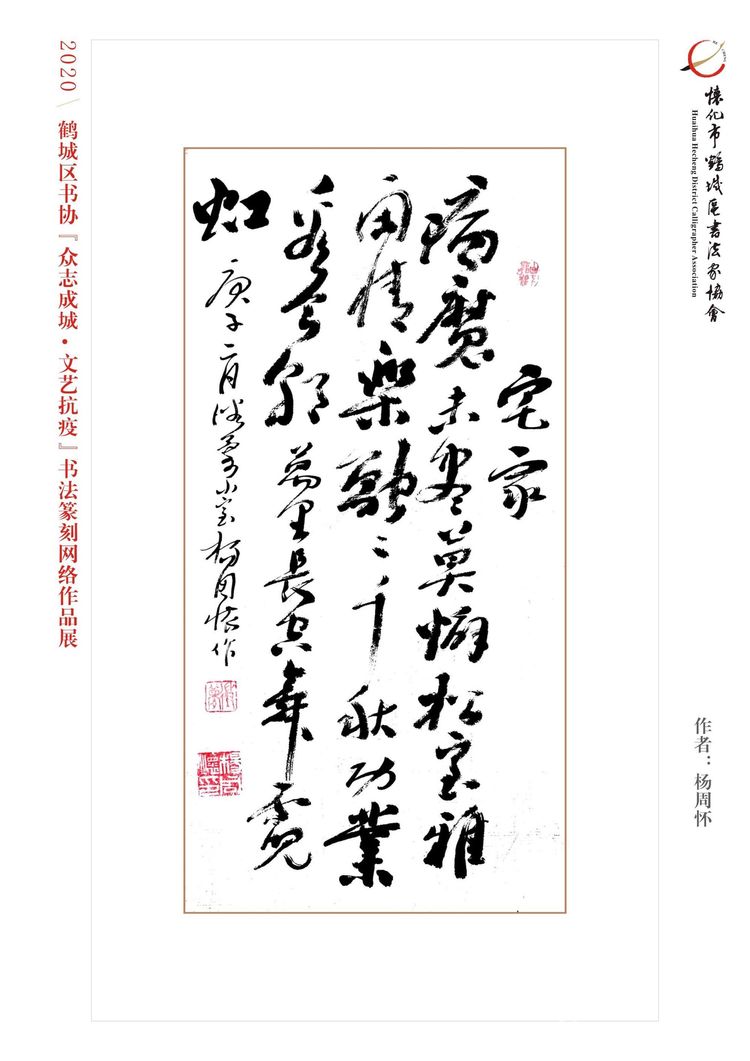 2020 \ 鹤城区书协『众志成城·文艺抗疫』书法篆刻网络作品展
懷化市鶴城區書法家協會
Huaihua Hecheng District Calligrapher Association
宅家
病魔未盡莫懈松室雅
情樂融〻千秋功業
看今朝萬里長空舞霓
虹
庚子二月 小室楊周懷作
作者：杨周怀